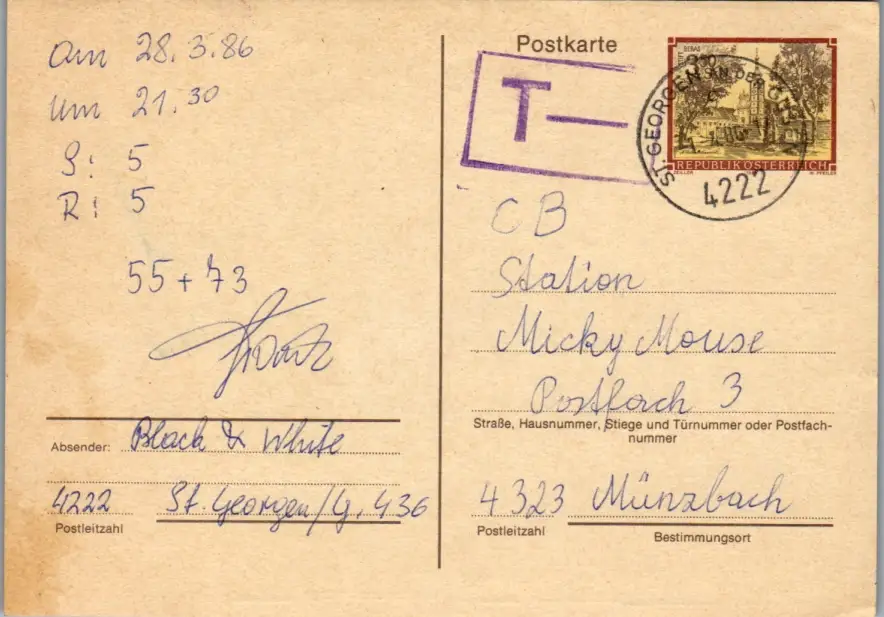 Am 28.3.86
um 21.30
S: 5
R: 5
55 + 73
Absender: Black & White
4222 St. Georgen/G. 436
Postleitzahl
Postkarte
T—
REPUBLIK ÖSTERREICH
ST. GEORGEN AN DER
4222
CB
Station
Micky Mouse
Postfach 3
Straße, Hausnummer, Stiege und Türnummer oder Postfach-
nummer
4323 Münzbach
Postleitzahl
Bestimmungsort